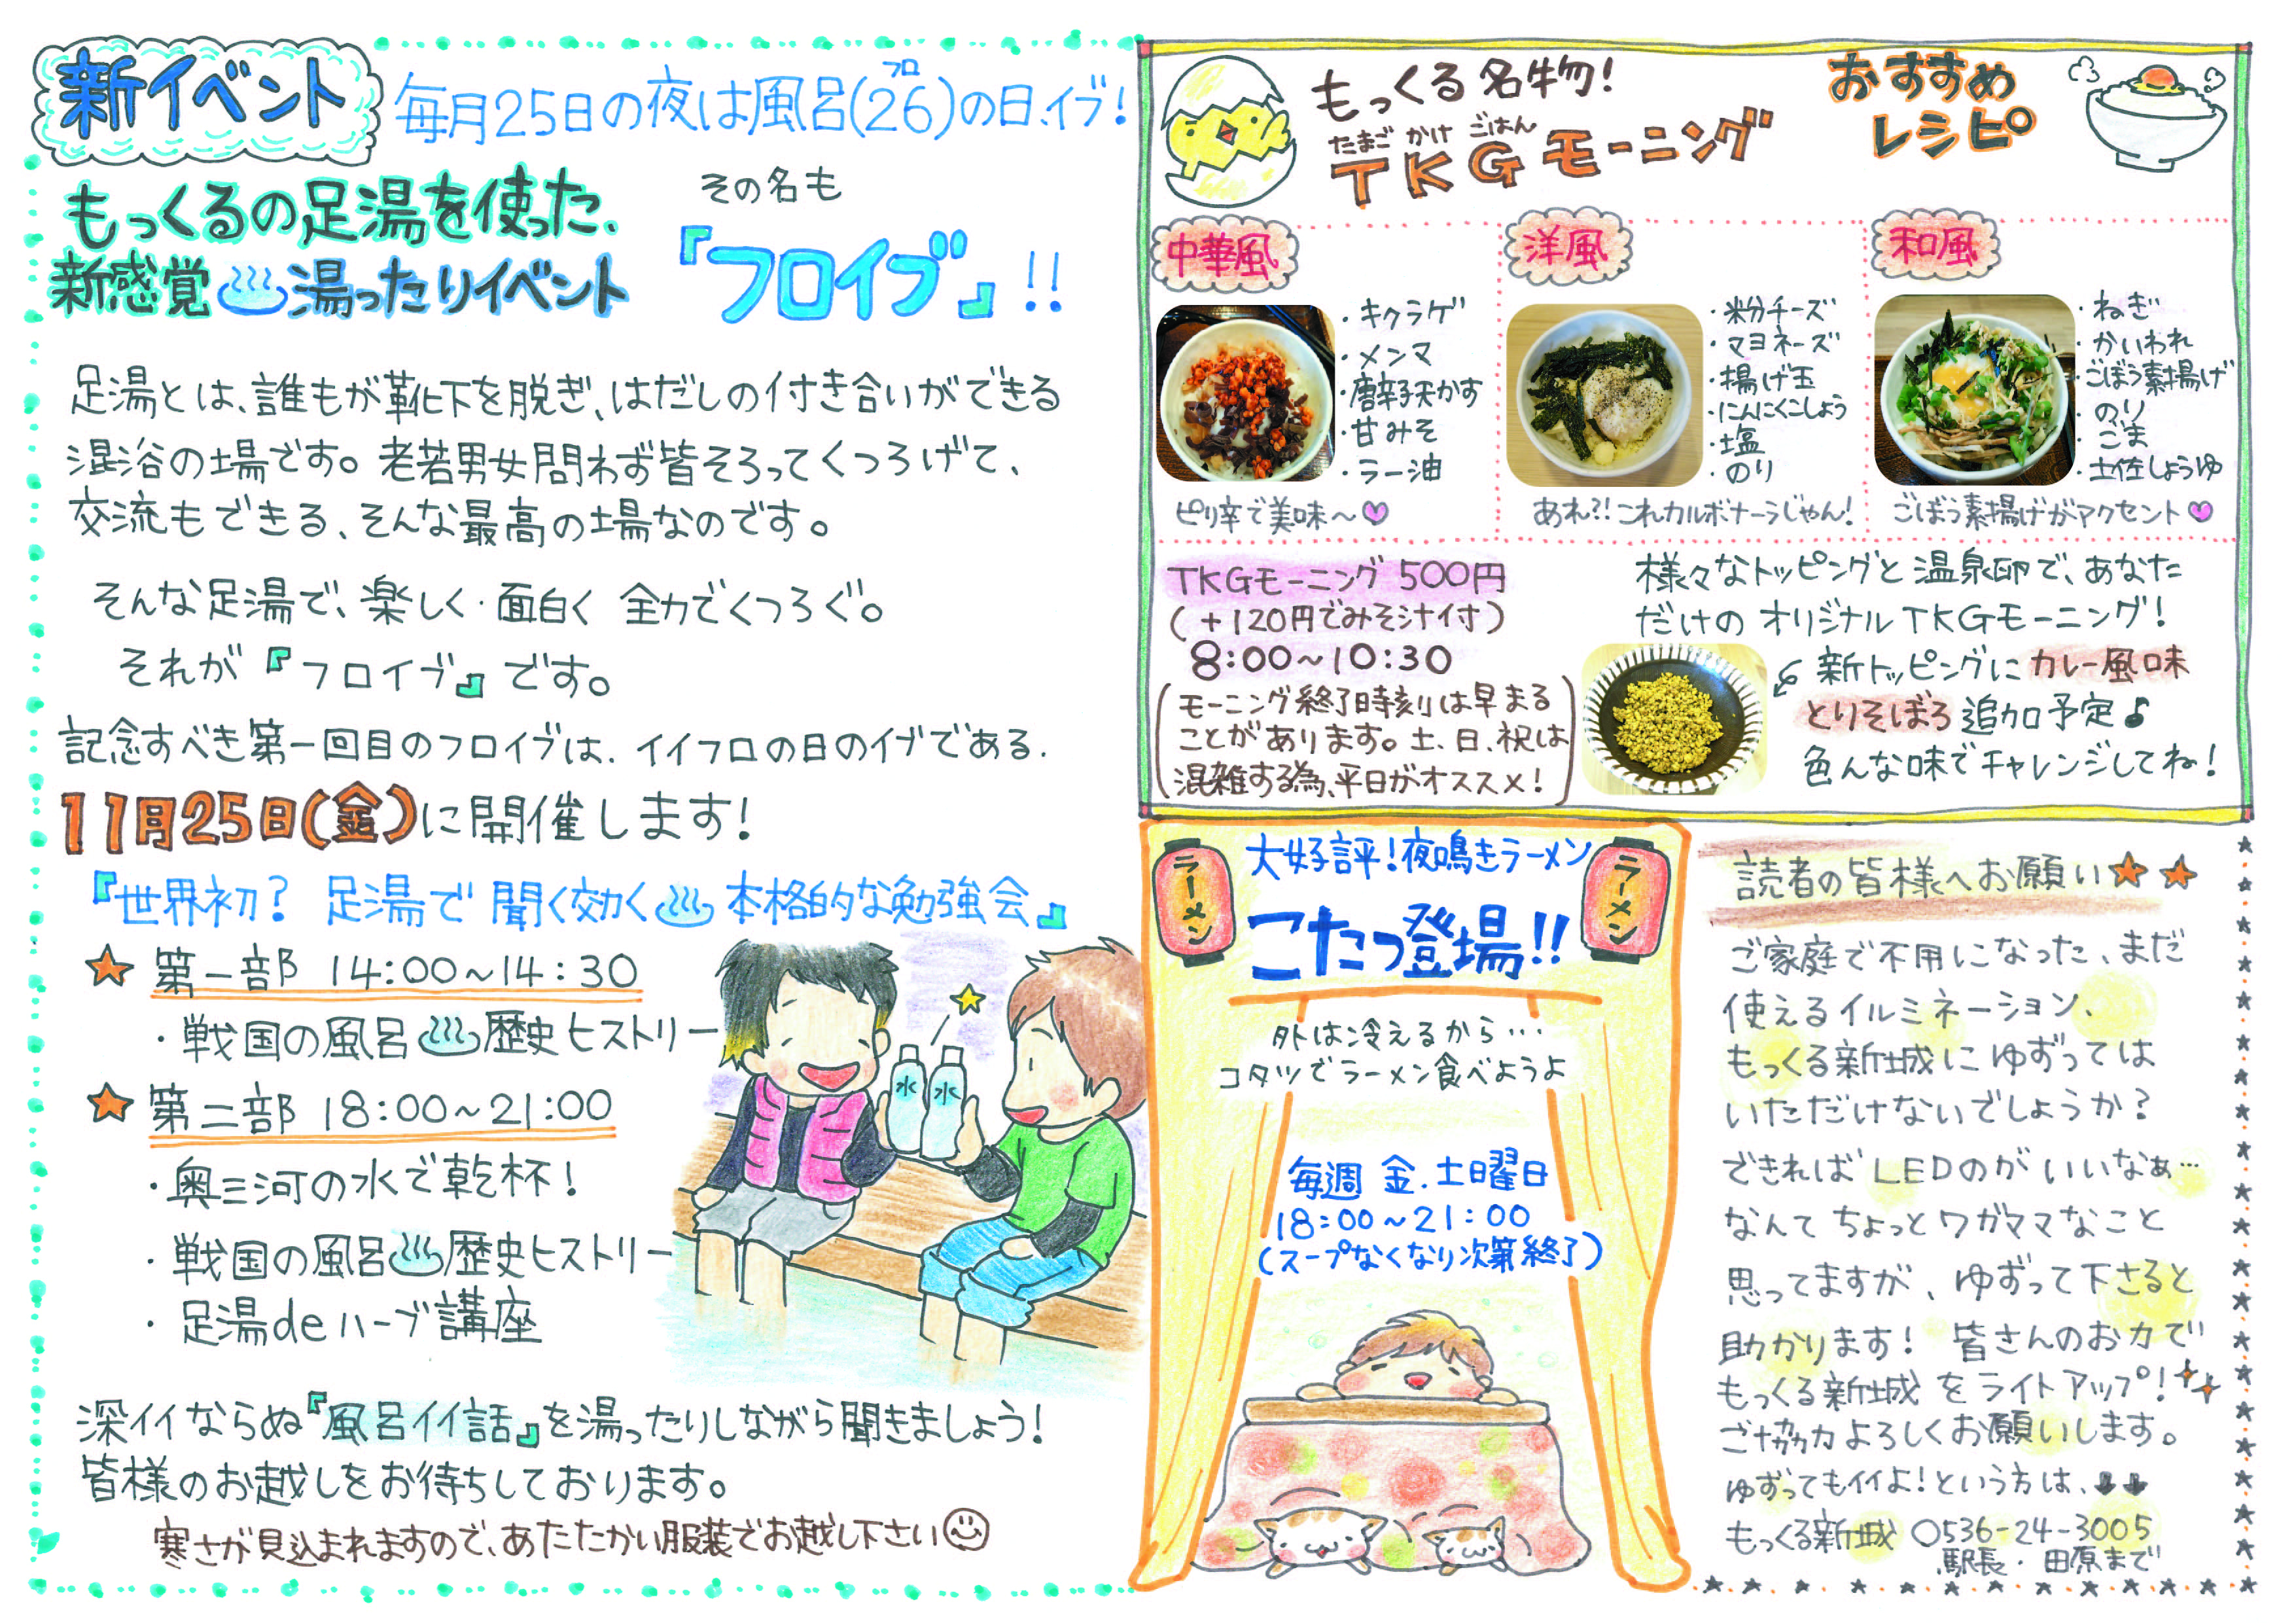 新イベント
毎月25日の夜は風呂(26)の日、イブ!
フロ
もっくるの足湯を使った、
新感覚♨湯ったりイベント
その名も
『フロイブ』!!
足湯とは、誰もが靴下を脱ぎ、はだしの付き合いができる
混浴の場です。老若男女問わず皆そろってくつろげて、
交流もできる、そんな最高の場なのです。
そんな足湯で、楽しく・面白く 全力でくつろぐ。
それが『フロイブ』です。
記念すべき第一回目のフロイブは、イイフロの日のイブである.
11月25日(金)に開催します!
『世界初? 足湯で 聞く効く♨本格的な勉強会』
★ 第一部 14:00~14:30
・戦国の風呂♨歴史ヒストリー
★ 第二部 18:00~21:00
・奥三河の水で乾杯!
・戦国の風呂♨歴史ヒストリー
・足湯deハーブ講座
水 水
深イイならぬ『風呂イイ話』を湯ったりしながら聞きましょう!
皆様のお越しをお待ちしております。
寒さが見込まれますので、あたたかい服装でお越し下さい
もっくる名物!
たまご かけ ごはん
TKGモーニング
おすすめ
レシピ
中華風
・キクラゲ
・メンマ
・唐辛子天かす
・甘みそ
・ラー油
ピリ辛で美味~♥
洋風
・粉チーズ
・マヨネーズ
・揚げ玉
・にんにくこしょう
・塩
・のり
あれ?!これカルボナーラじゃん!
和風
・ねぎ
・かいわれ
・ごぼう素揚げ
・のり
・ごま
・土佐しょうゆ
ごぼう素揚げがアクセント♥
TKGモーニング 500円
(+120円でみそ汁付)
8:00~10:30
(モーニング終了時刻は早まる
ことがあります。土、日、祝は
混雑する為、平日がオススメ!)
様々なトッピングと温泉卵で、あなた
だけの オリジナルTKGモーニング!
新トッピングにカレー風味
とりそぼろ追加予定♪
色んな味でチャレンジしてね!
ラーメン
大好評!夜鳴きラーメン
ラーメン
こたつ登場!!
外は冷えるから…
コタツでラーメン食べようよ
毎週 金.土曜日
18:00~21:00
(スープなくなり次第終了)
読者の皆様へお願い★★
ご家庭で不用になった、まだ
使えるイルミネーション、
もっくる新城にゆずっては
いただけないでしょうか?
できればLEDのがいいなぁ…
なんてちょっとワガママなこと
思ってますが、ゆずって下さると
助かります! 皆さんのお力で
もっくる新城をライトアップ!
ご協力よろしくお願いします。
ゆずってもイイよ!という方は、↓↓
もっくる新城 0536-24-3005
駅長・田原まで